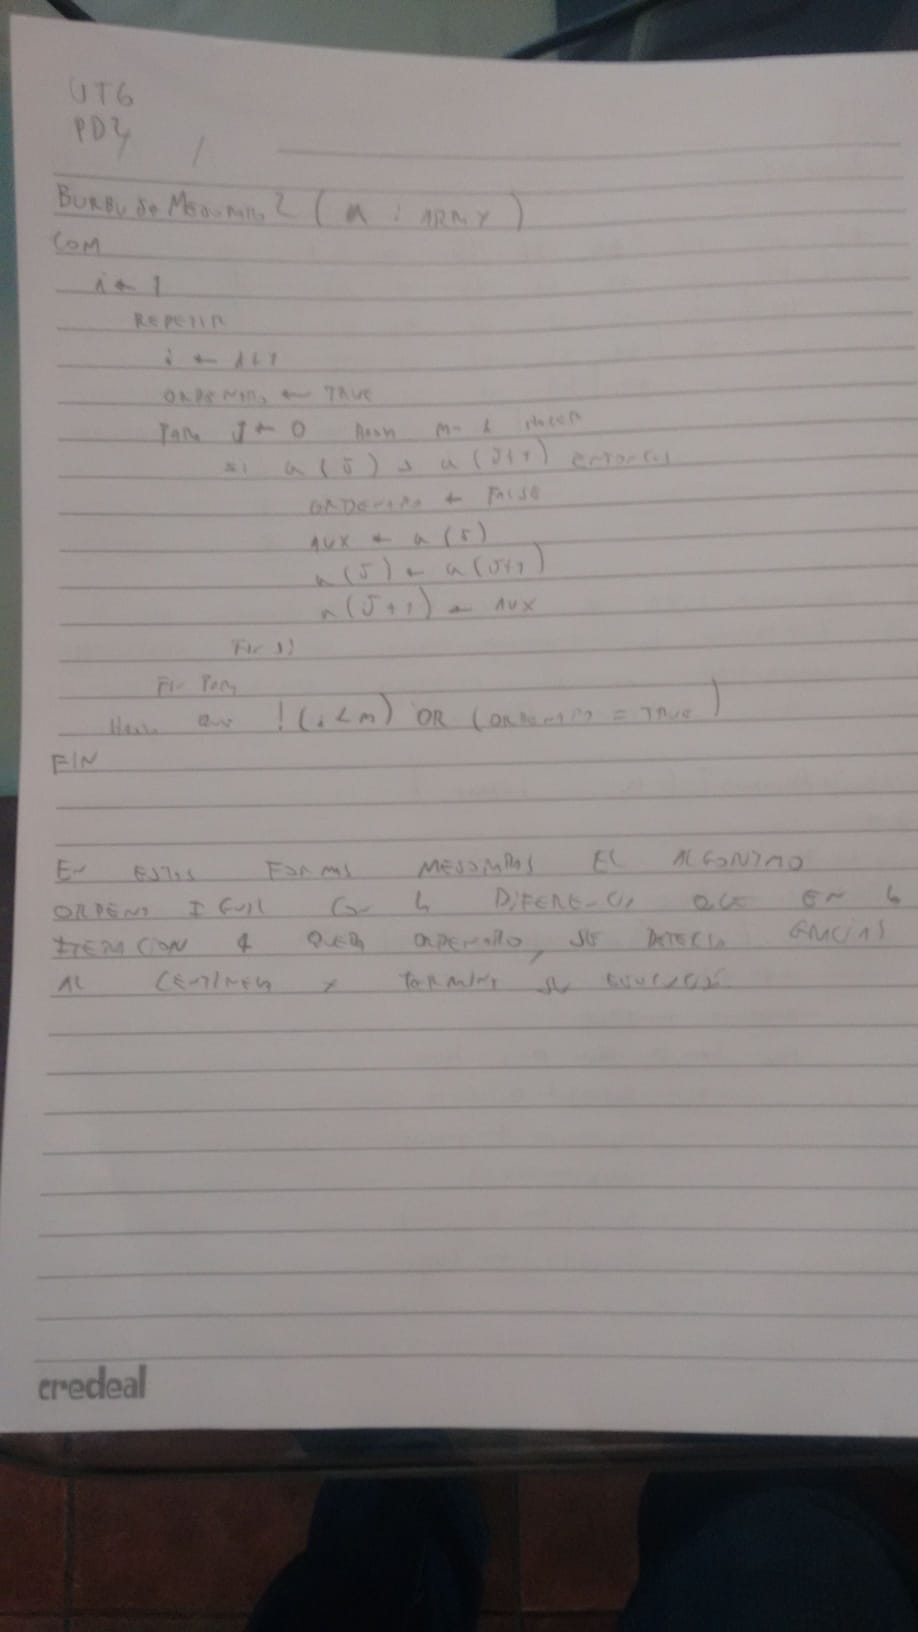 UT6
PD2
BURBUJA MEJORADA 2 (a : ARRAY)
COM
i ← 1
REPETIR
i ← i+1
ORDENADO ← TRUE
PARA J ← 0 HASTA HACER
SI a(J) > a(J+1) ENTONCES
ORDENADO ← FALSE
AUX ← a(J)
a(J) ← a(J+1)
a(J+1) ← AUX
FIN SI
FIN PARA
HASTA QUE !(i<n) OR (ORDENADO = TRUE)
FIN
EN ESTAS FORMAS MEJORADAS EL ALGORITMO
ORDENA IGUAL CON LA DIFERENCIA QUE EN LA
ITERACION 4 QUEDA ORDENADO, SE DETECTA GRACIAS
AL CENTINELA Y TERMINA SU EJECUCION
credeal